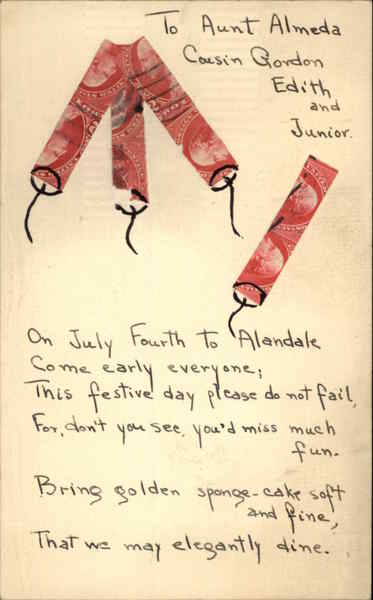 To Aunt Almeda
Cousin Gordon
Edith
and
Junior.
On July Fourth to Alandale
Come early everyone;
This festive day please do not fail,
For, don't you see, you'd miss much
fun.
Bring golden sponge-cake soft
and fine,
That we may elegantly dine.